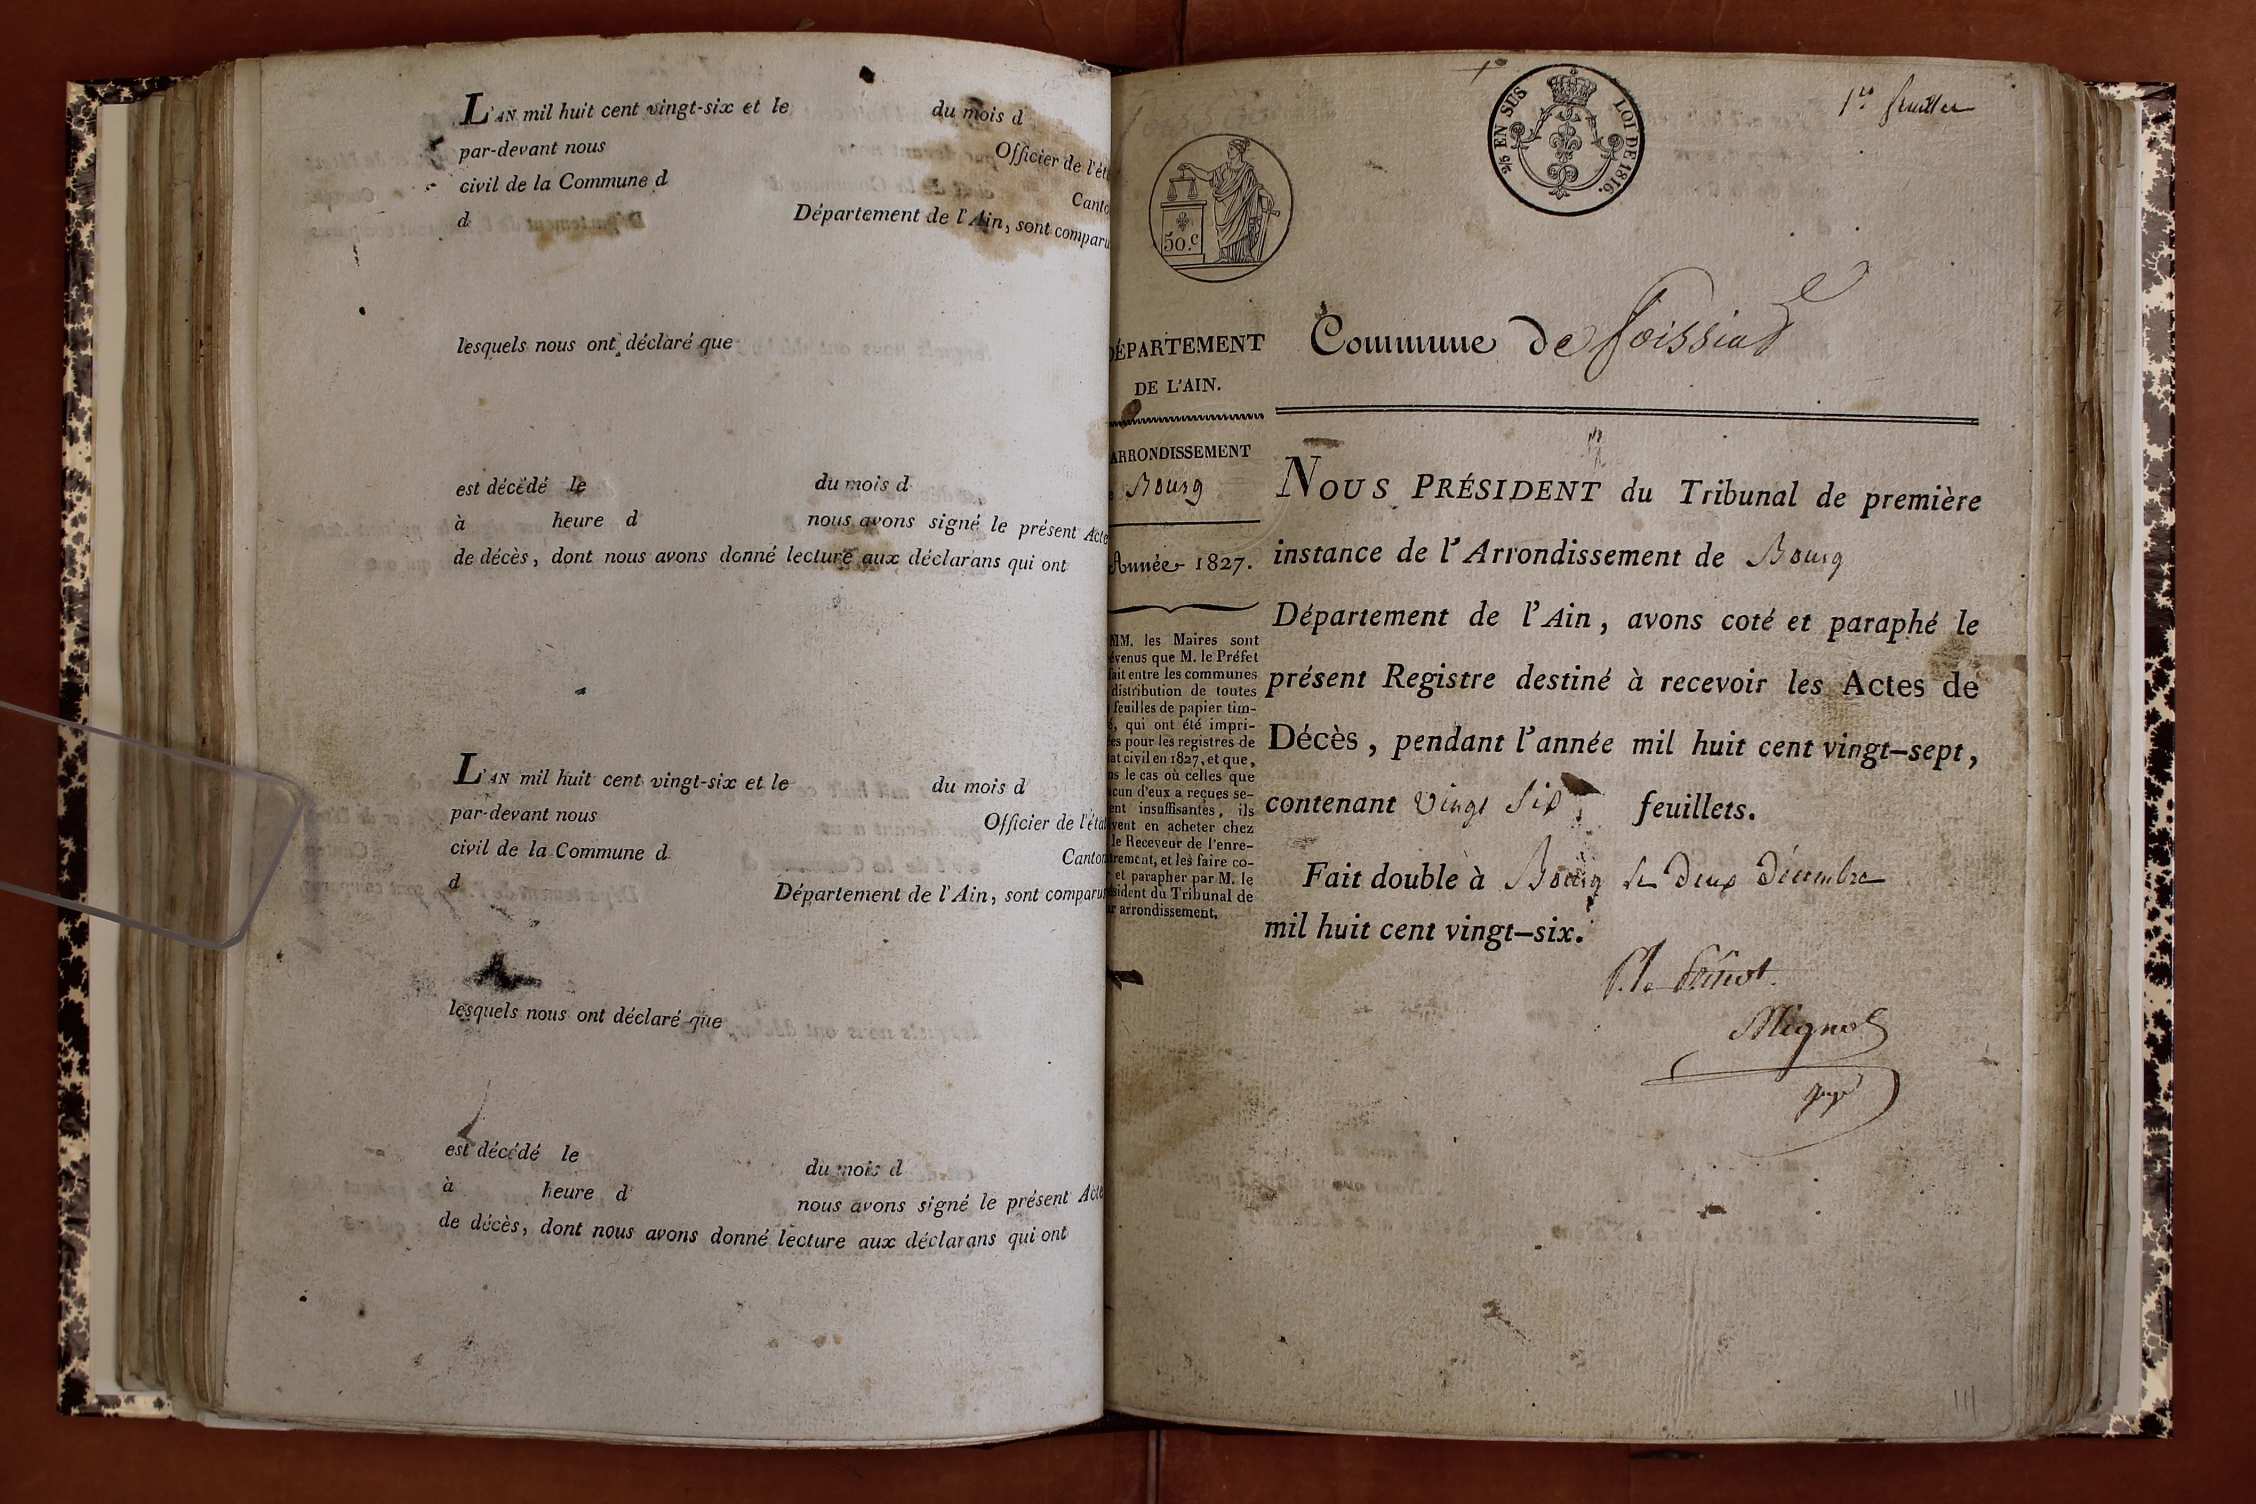 L'AN mil huit cent vingt-six et le du mois d
par-devant nous Officier de l'ét
civil de la Commune d Canto
d Département de l'Ain, sont comparu
lesquels nous ont déclaré que
est décédé le du mois d
à heure d nous avons signé le présent Acte
de décès, dont nous avons donné lecture aux déclarans qui ont
L'AN mil huit cent vingt-six et le du mois d
par-devant nous Officier de l'éta
civil de la Commune d Canton
d Département de l'Ain, sont comparu
lesquels nous ont déclaré que
est décédé le du mois d
à heure d nous avons signé le présent Acte
de décès, dont nous avons donné lecture aux déclarans qui ont
EN SUS LOI DE 1816.
1er feuillet
50.c
DÉPARTEMENT
DE L'AIN.
ARRONDISSEMENT
Bourg
Année 1827.
MM. les Maires sont
évenus que M. le Préfet
fait entre les communes
distribution de toutes
feuilles de papier tim-
é, qui ont été impri-
es pour les registres de
at civil en 1827, et que,
ns le cas où celles que
acun d'eux a reçues se-
ent insuffisantes, ils
vent en acheter chez
le Receveur de l'enre-
trement, et les faire co-
r et parapher par M. le
ésident du Tribunal de
ur arrondissement.
Commune de foissiat
NOUS PRÉSIDENT du Tribunal de première
instance de l'Arrondissement de Bourg
Département de l'Ain, avons coté et paraphé le
présent Registre destiné à recevoir les Actes de
Décès, pendant l'année mil huit cent vingt-sept,
contenant vingt six feuillets.
Fait double à Bourg le deux décembre
mil huit cent vingt-six.
Mignot
juge